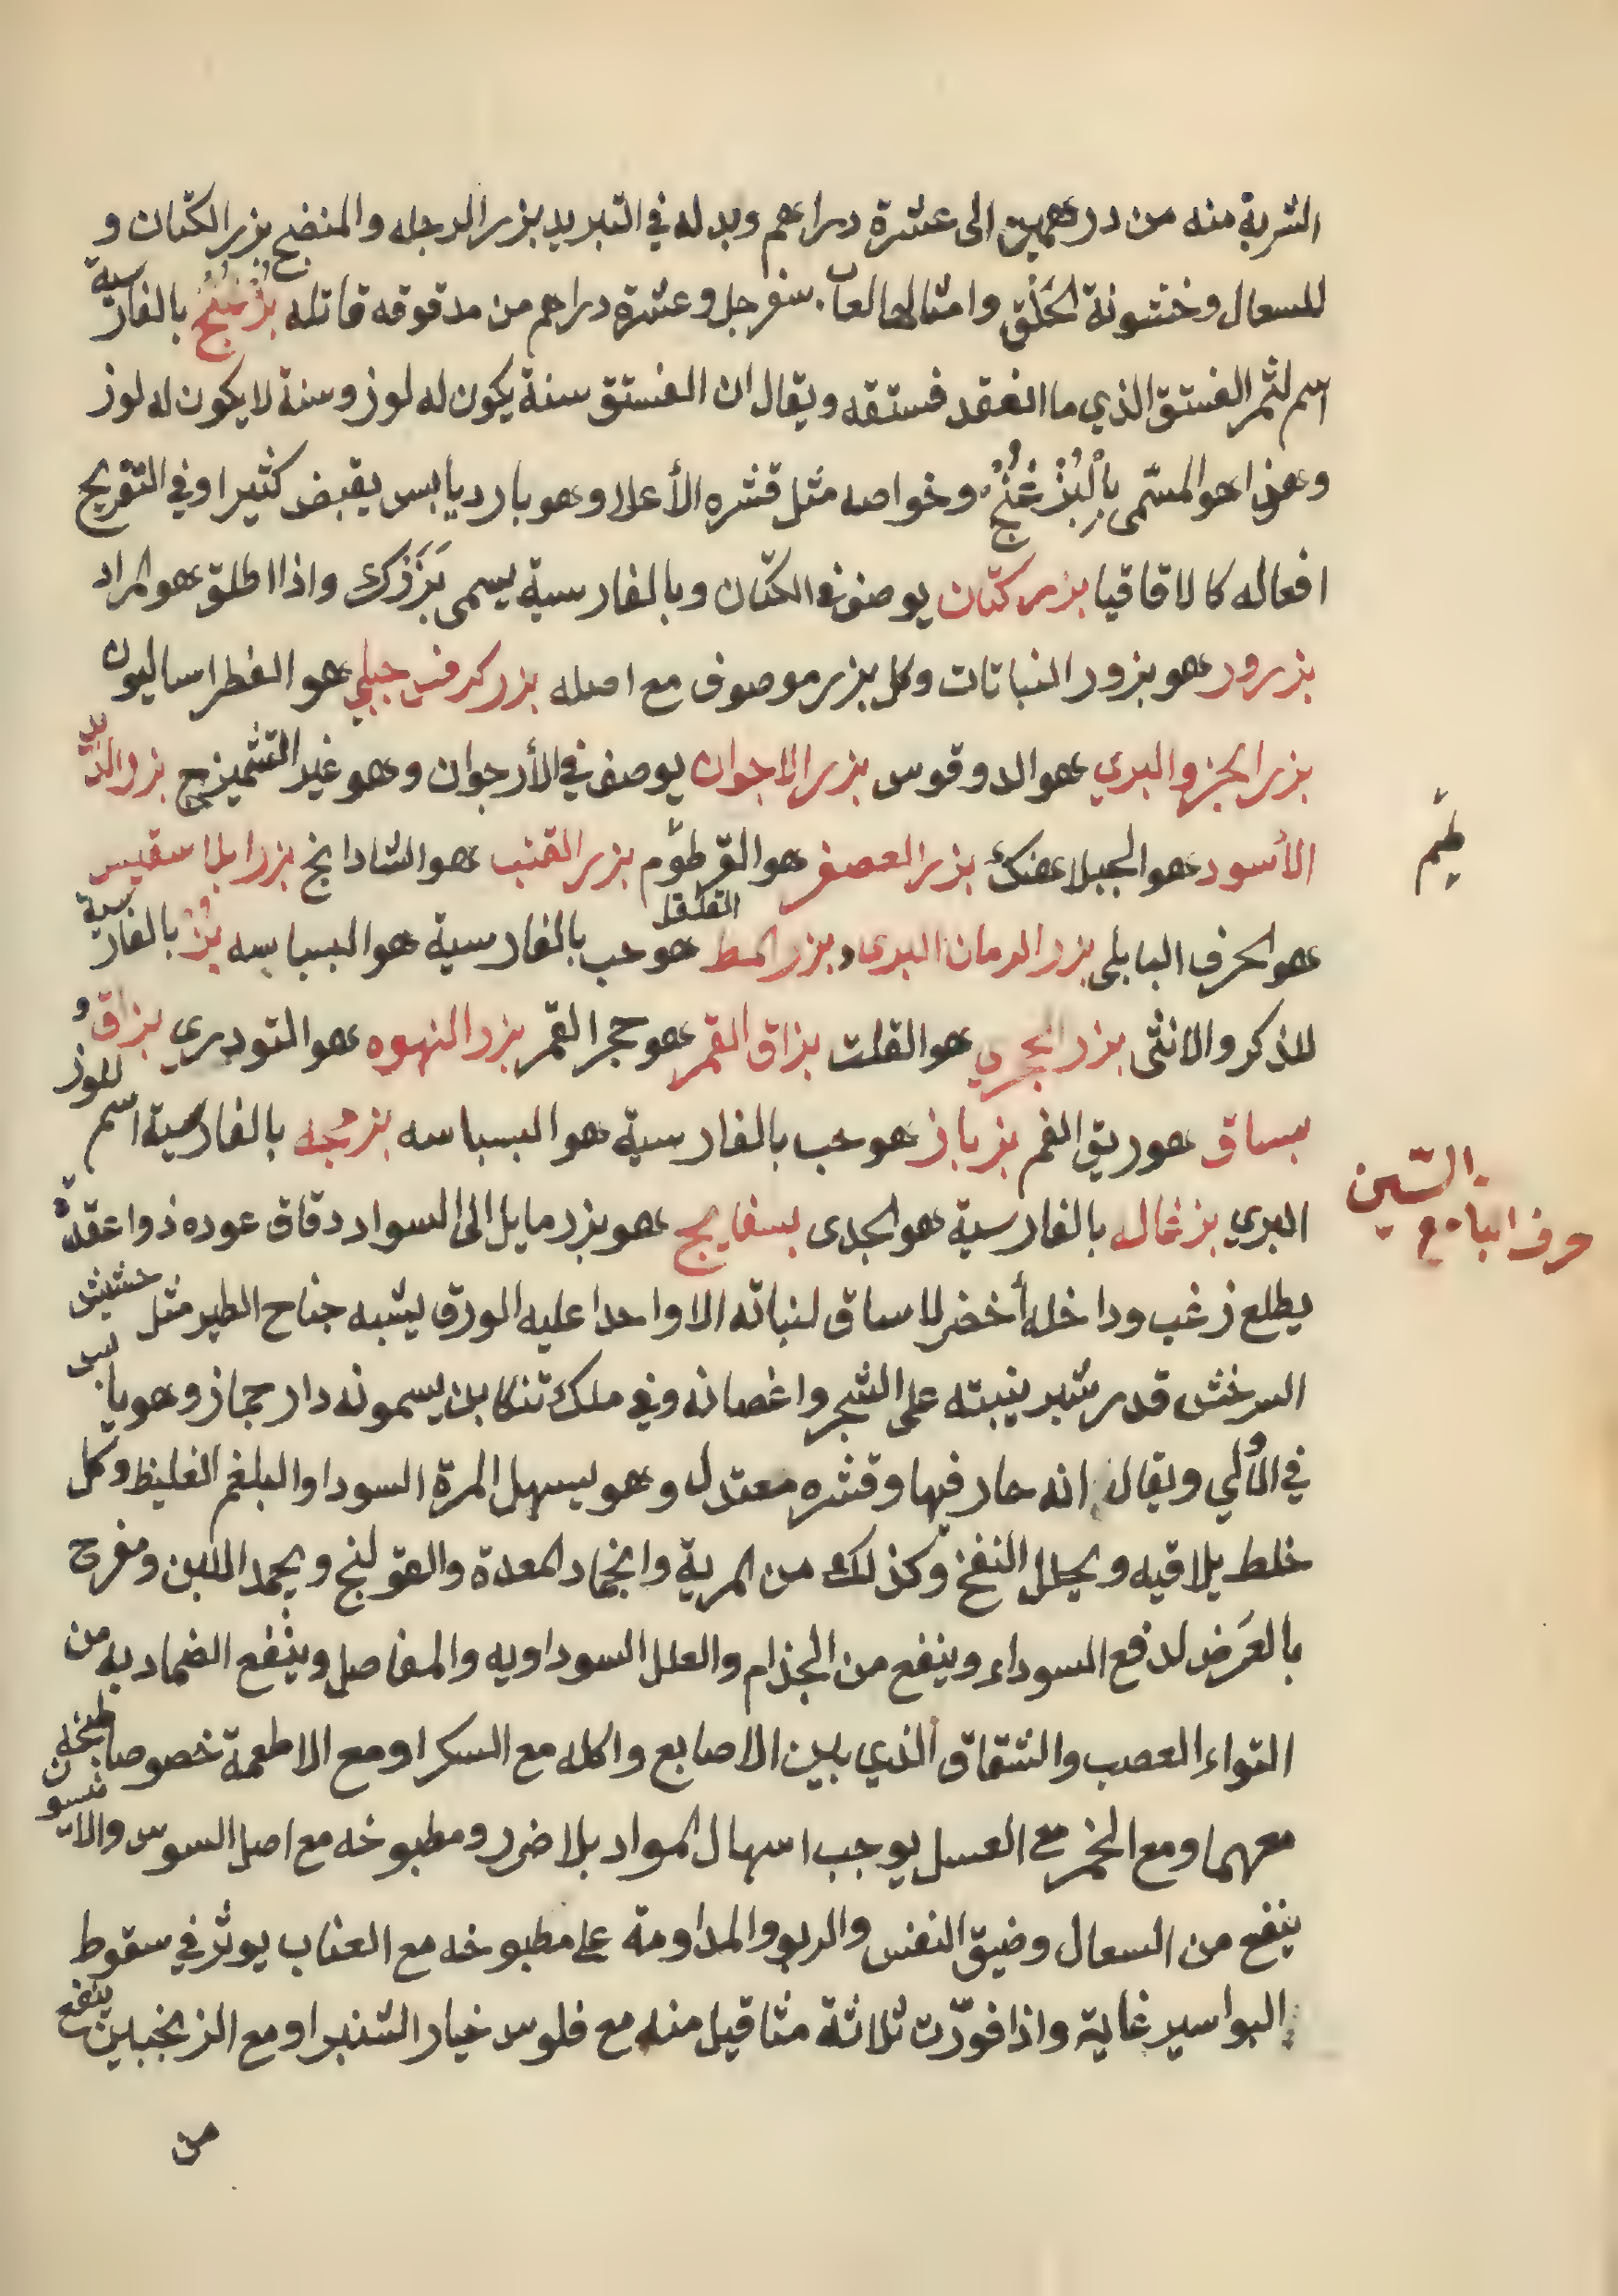 الشربة منه من درهمين الى عشرة دراهم وبدله في التبريد بزر الرجله والمنضج بزر الكتان و
للسعال وخشونة الحَلْق وامثالها لعاب سفرجل وعشرة دراهم من مدقوقه قاتله بُزْغُنْج بالفارسية
اسم لثمر الفستق الذي ما انعقد فستقه ويقال ان الفستق سنة يكون له لوز وسنة لا يكون له لوز
وهذا هو المسّمى بِالْبُزْغُنْجْ وخواصه مثل قشره الأعلا وهو بارد يابس يقبض كثيرا وفي التفريح
افعاله كالاقاقيا بزر كتّان يوصف في الكتّان وبالفارسية يسمى بَزَرَك واذا اطلق هو المراد
بزرور هو بزور النباتات وكل بزر موصوف مع اصله بزر كرفس جبلي هو الفطراساليون
بزر الجزر البري هو الدوقوس بزر الاجوان يوصف في الأرجوان وهو غير التشميزج بزر
الأسود هو الجبلاهنك بزر العصفر هو القرطوّم بزر القنب هو الشادانج بزر ابلا سقيس
هو الحرف البابلي بزر الرمان البري وبزر المط القلقل هو حب بالفارسية هو البسباسه بُز بالفارسية
للذكر والانثى بزر البحري هو القلت بزاق القمر هو حجر القمر بزر النهوه هو التودري بزاق و
بساق هو ريق الفم بزباز هو حب بالفارسية هو البسباسه بزبجه بالفارسية اسم للوز
البري بزغاله بالفارسية هو الجدى بسفايج هو بزر مايل الى السواد دقاق عوده ذوا عقدة
يطلع زغب وداخله أخضر لا ساق لنباته الا واحدا عليه الورق يشبه جناح الطير مثل حشيش
السرخش قدر شبر ينبته على الشجر واغصانه وفي ملك تنكابن يسمونه دار جماز وهو يابس
في الأولي ويقال انه حار فيها وقشره معتدل وهو يسهل المرة السودا والبلغم الغليظ وكل
خلط يلاقيه ويحلل النفخ وكذلك من المرية وانجماد المعدة والقولنج ويجمد اللبن ومفرح
بالعَرَض لدفع السوداء وينفع من الجذام والعلل السوداويه والمفاصل وينفع الضماد به من
التواء العصب والشقاق الذي بين الاصابع واكله مع السكر او مع الاطعمة خصوصا طبخه
معهما ومع الخمر مع العسل يوجب اسهال المواد بلا ضرر ومطبوخه مع اصل السوس والانيسون
ينفع من السعال وضيق النفس والربو والمداومة على مطبوخه مع العناب يوثر في سقوط
البواسير غاية واذا فوّرت ثلاثة مثاقيل منه مع فلوس خيار الشنبر او مع الزنجبين ينفع
من
حرف البا مع السّين